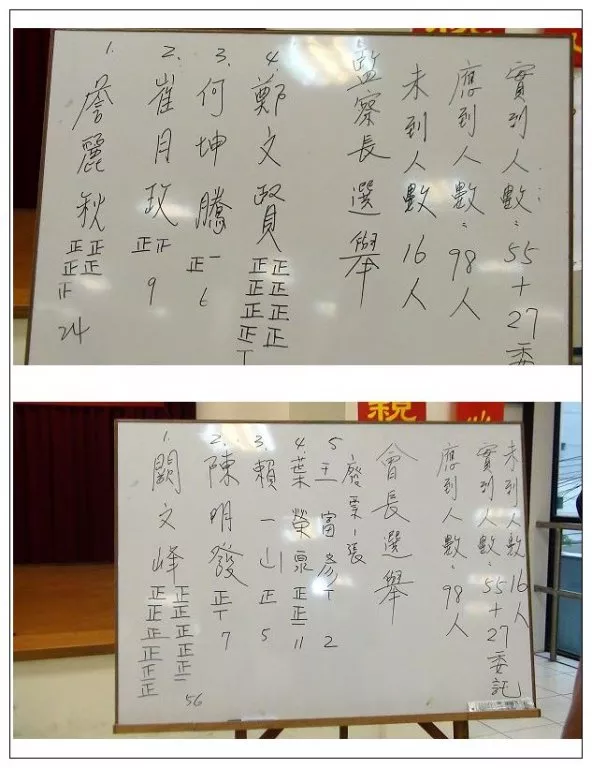 實到人數：55＋27委
應到人數：98人
未到人數16人
監察長選舉
4.鄭文賢正正正正正正正正丅
3.何坤騰正一6
2.崔月政正正9
1.詹麗秋正正正正正24
未到人數16人
實到人數：55＋27委託
應到人數：98人
會長選舉
廢票1張
5王富彥丅2
4.葉榮泉正正一11
3.賴一山正5
2.陳明發正丅7
1.闕文峰正正正正正正正正正正正56